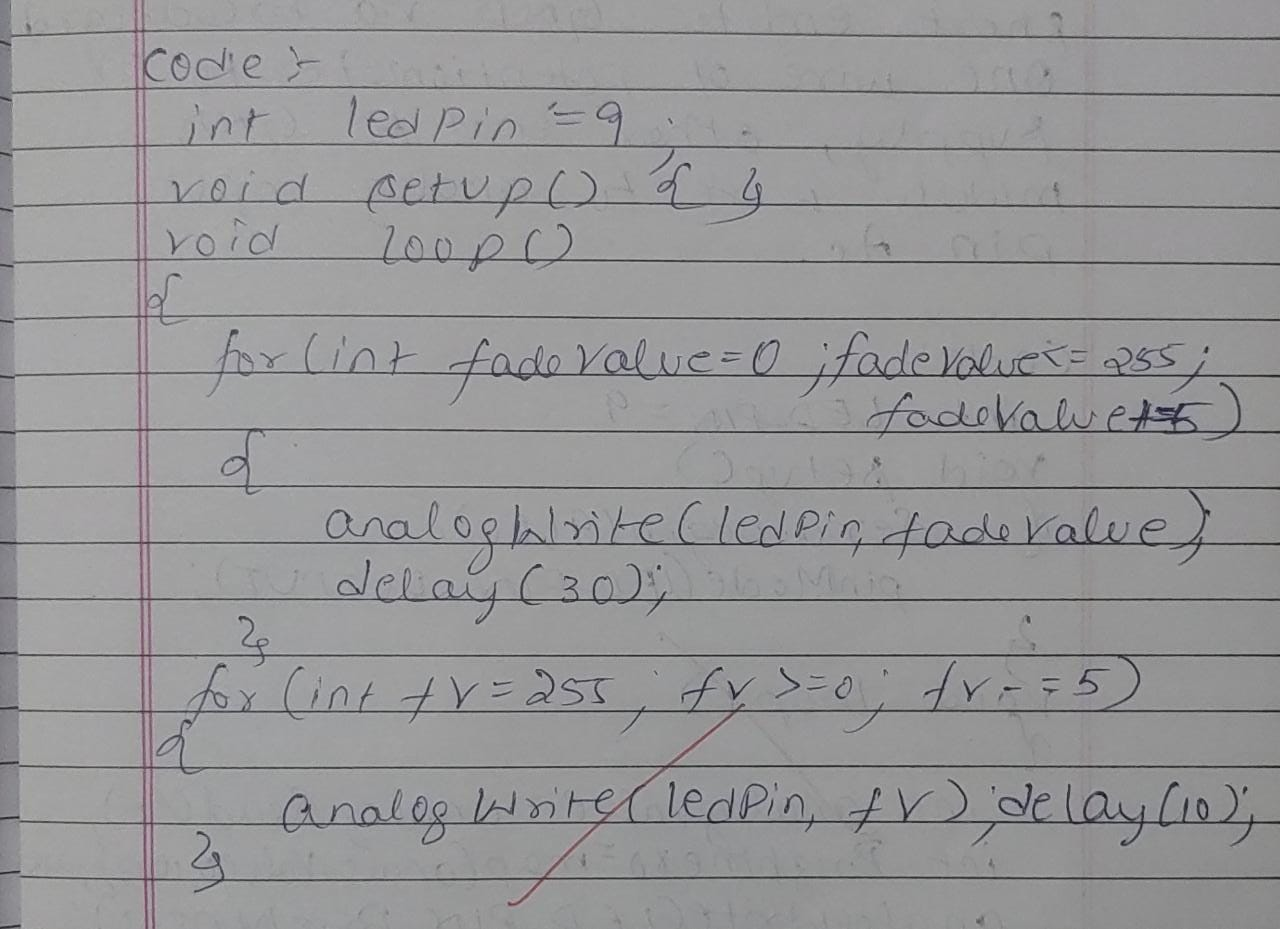 Code :-
int ledPin = 9;
void setup() { }
void loop()
{
for (int fadeValue = 0 ; fadeValue <= 255;
fadeValue += 5)
{
analogWrite(ledPin, fadeValue);
delay(30);
}
for (int fv = 255; fv >= 0; fv -= 5)
{
analogWrite(ledPin, fv); delay(10);
}